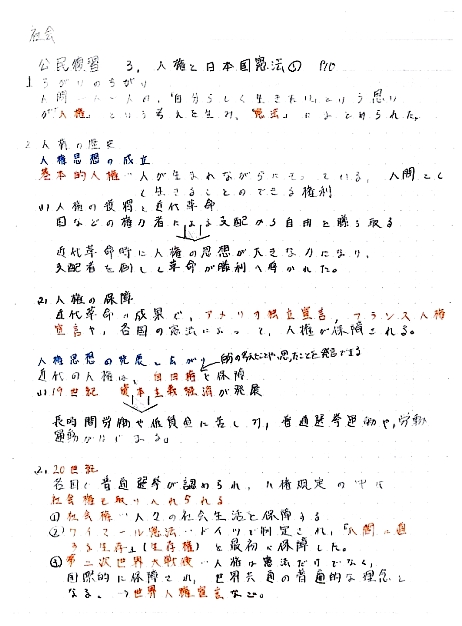 社会
公民復習 3. 人権と日本国憲法① P10
1 ちがいのちがい
人間 一人一人が、「自分らしく生きたい」という思い
が「人権」という考えを生み、「憲法」にまとめられた。
2 人権の歴史
人権思想の成立
基本的人権…人が生まれながらにもっている、人間とし
て生きることのできる権利
(1) 人権の獲得と近代革命
国などの権力者による支配から自由を勝ち取る
近代革命時に人権の思想が大きな力になり、
支配者を倒して革命が勝利へ導かれた。
(2) 人権の保障
近代革命の成果で、アメリカ独立宣言、フランス人権
宣言や、各国の憲法によって、人権が保障される。
人権思想の発展と広がり
自分の考えたことや思ったことを発言できる
近代の人権は、自由権を保障
(1) 19世紀 資本主義経済が発展
長時間労働や低賃金に苦しみ、普通選挙運動や、労働
運動がおこる。
(2) 20世紀
各国で普通選挙が認められ、人権規定の中に
社会権も取り入れられる
①社会権…人々の社会生活を保障する
②ワイマール憲法…ドイツで制定され、「人間に値
する生存」(生存権)を最初に保障した。
③第二次世界大戦後…人権は憲法だけでなく、
国際的に保障され、世界共通の普遍的な理念と
なる。→世界人権宣言など。